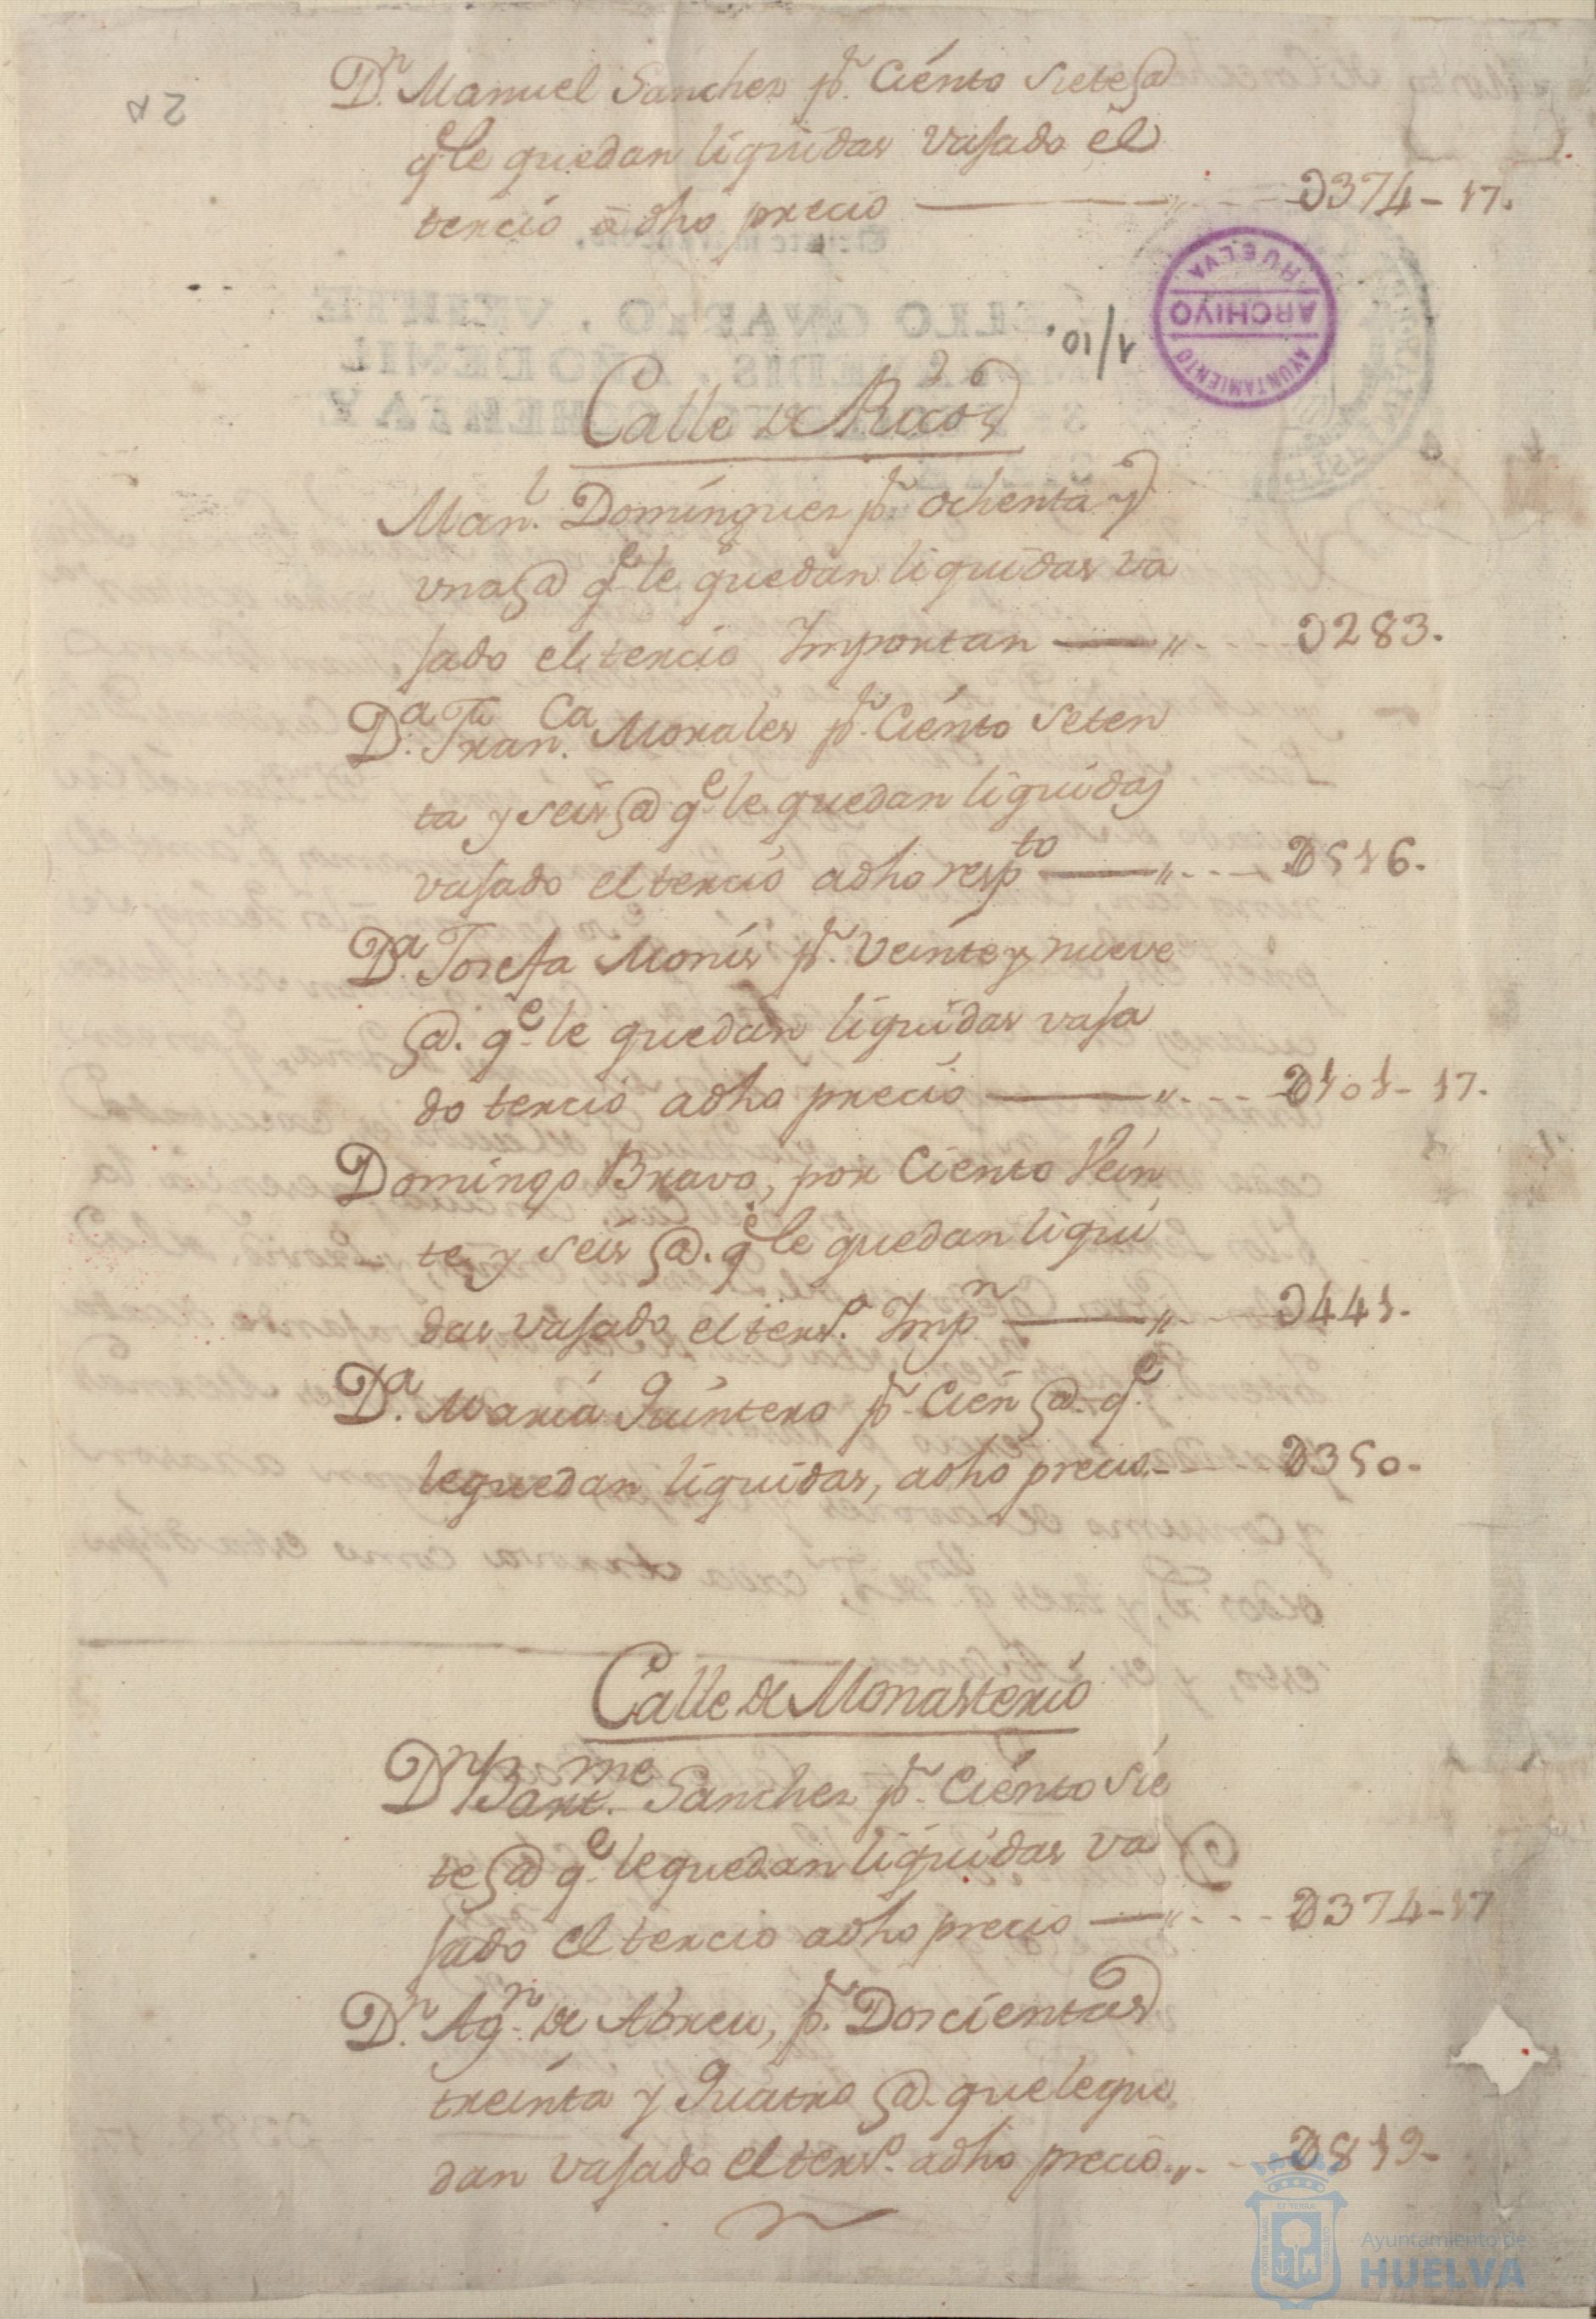 Dn. Manuel Sanchez pr. Ciento siete @
qe le quedan liquidas vasado el
tercio a dho precio 374-17.
AYUNTAMIENTO
ARCHIVO
HUELVA
1/10.
Calle de Ricos
Manl. Dominguez pr. ochenta y
una @ qe le quedan liquidas va
sado el tercio Importan 283.
Da. Franca. Morales pr. Ciento seten
ta y seis @ qe le quedan liquidas
vasado el tercio a dho respto 516.
Da. Josefa Monis pr. Veinte y nueve
@. qe le quedan liquidas vasa
do tercio a dho precio 101-17.
Domingo Bravo, por Ciento Vein
te y seis @. qe le quedan liqui
das vasado el terso. Impn 441.
Da. Maria Quintero pr. Cien @ qe.
le quedan liquidas, a dho precio 350.
Calle de Monasterio
Dn Bartme. Sanchez pr. Ciento sie
te @ qe le quedan liquidas va
sado el tercio a dho precio 374-17
Dn. Agn. de Abreu, pr. Doscientas
treinta y Quatro @. que le que
dan vasado el terso. a dho precio 819-
Ayuntamiento de
HUELVA